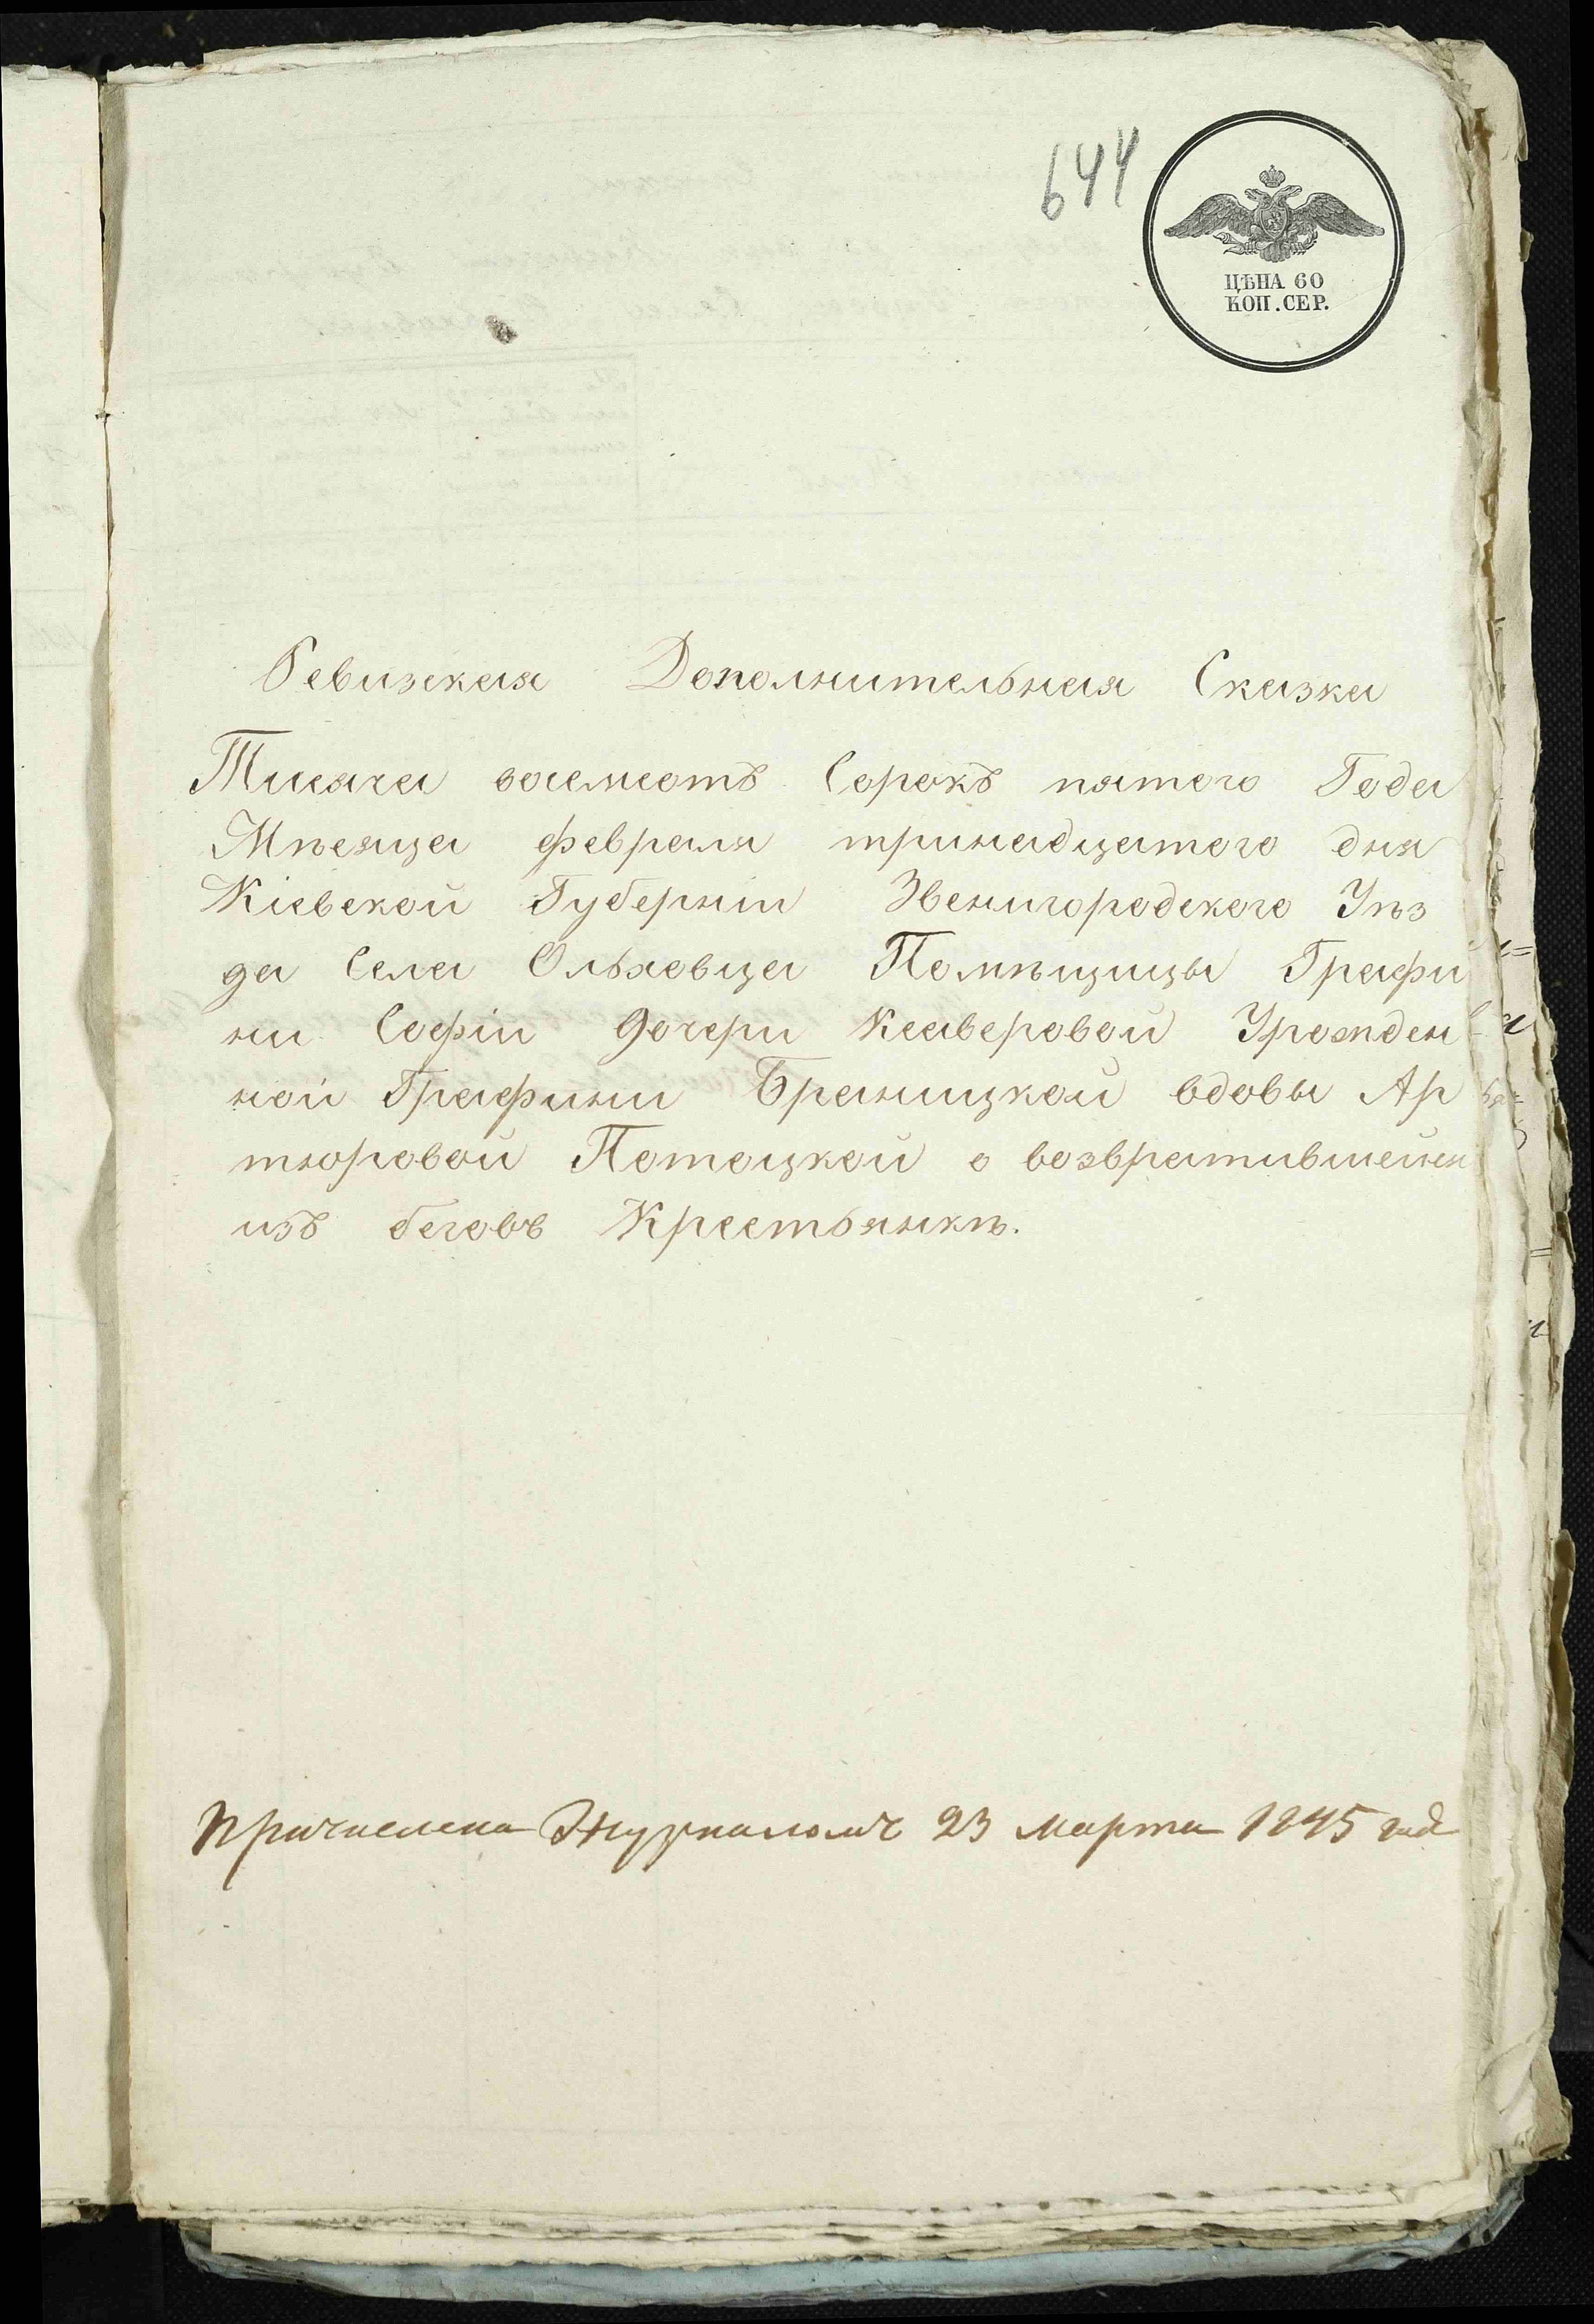 644
ЦѢНА 60
КОП. СЕР.
Ревизская Дополнительная Сказка
Тисяча восемсотъ Сорокъ пятого Года
Мѣсяца февраля тринадцатого дня
Кіевской Губерніи Звенигородского Уѣз
да Села Ольховца Помѣщицы Графи
ни Софіи Дочери Ксаверовой Урожден
ной Графини Браницкой вдовы Ар
тюровой Потоцкой о возвратившейся
изъ беговъ Крестьянкѣ.
Причислена Журналомъ 23 марта 1845 года